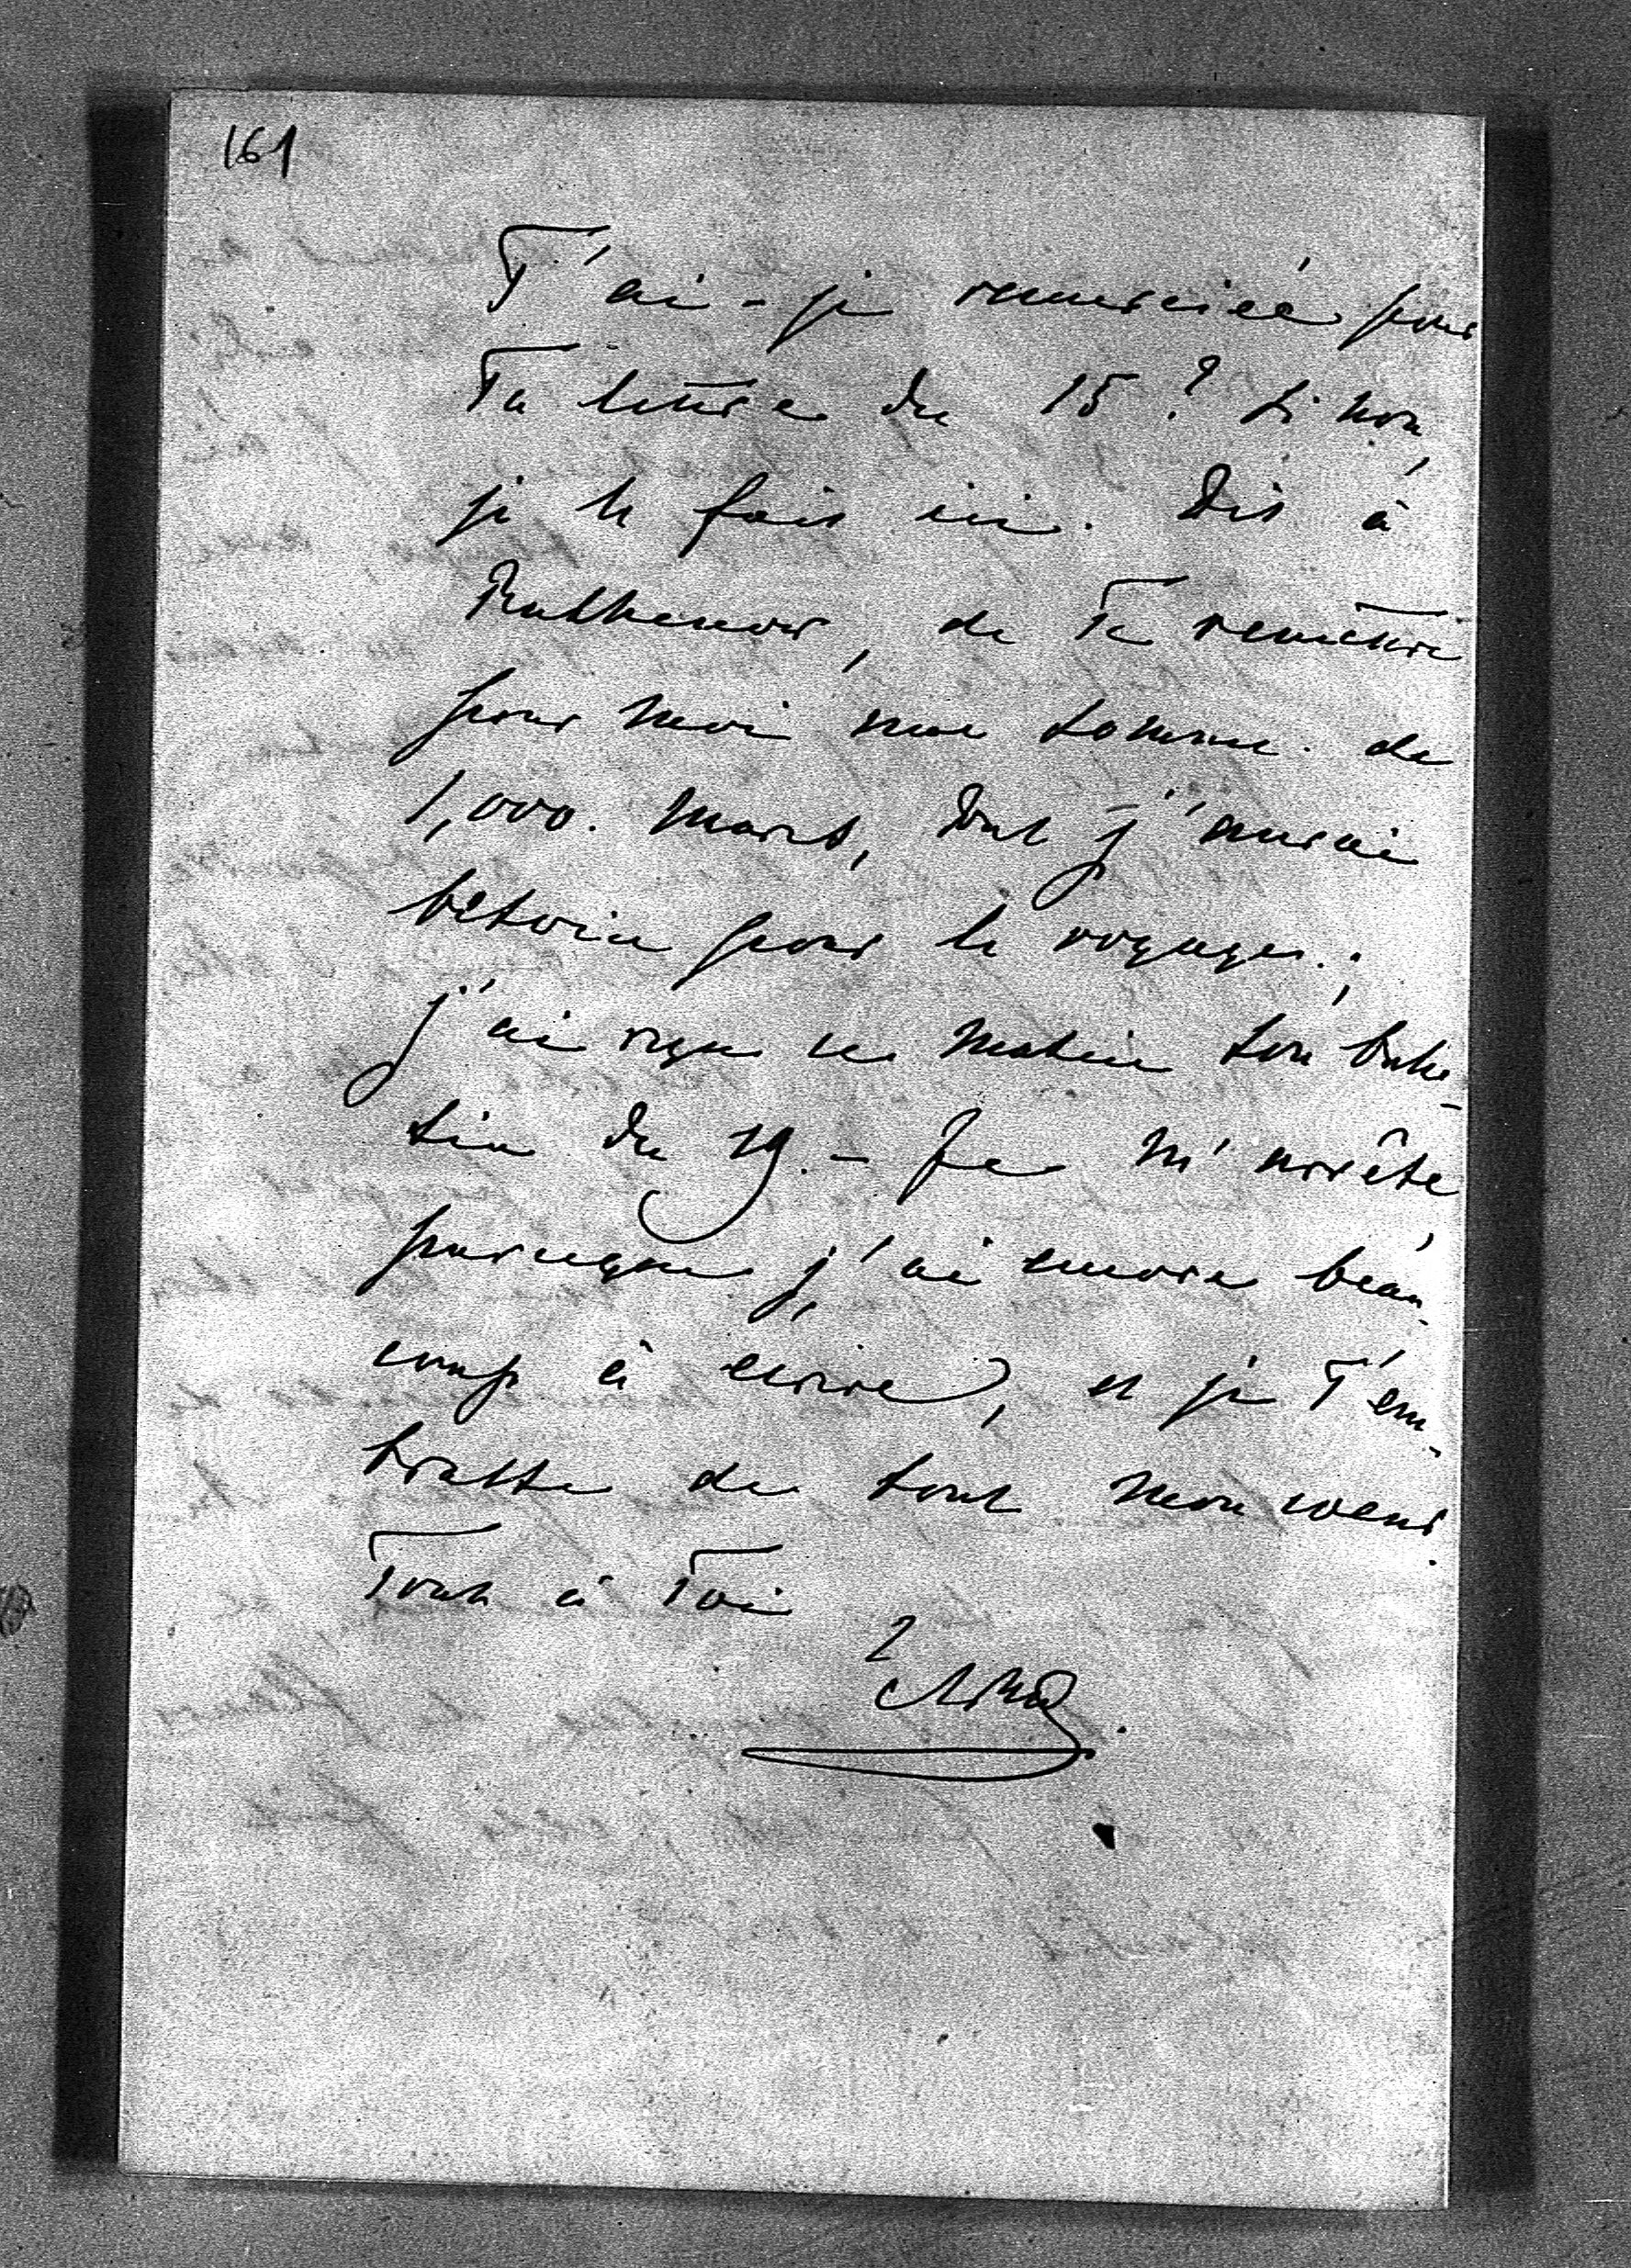 161
T'ai-je remerciée pour
Ta lettre du 15? Si non,
je le fais ici. Dis à
de Te remettre
pour moi une somme de
1,000. marcs, dont j'aurai
besoin pour le voyage.;
j'ai reçu ce matin ton bulle-
tin du 19. - Je m'arrête
parceque j'ai encore beau-
coup à écrire, et je T'em-
brasse de tout mon coeur.
Tout à Toi